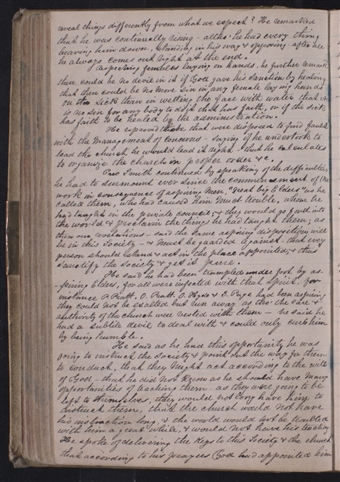 several things differently from what we expect? He remarked
that he was continually rising - altho he had every thing
bearing him down, standing in his way & opposing - after all
he always comes out right at the end.
Respecting females laying on hands, he further remark'd,
there could be no devil in it if God gave his sanction by healing
that there could be no more sin in any female laying hands
on the sick than in wetting the face with water that it
is no sin for any body to do it that has faith, or if the sick
has faith to be healed by the administration.
He reproved those that were disposed to find fault
with the management of concerns - saying if he undertook to
lead the church he would lead it right - that he calculates
to organize the church in proper order &c.
Prest. Smith continued by speaking of the difficulties
he had to surmount ever since the commencement of the
work in consequence of aspiring men, "great big Elders" as he
called them, who had caused him much trouble, whom he
had taught in the private counsel; & they would go forth into
the world & proclaim the things he had taught them; as
their own revelations - said the same aspiring disposition will
be in this Society, & must be guarded against - that every
person should stand and act in the place appointed, & thus
sanctify the Society & get it pure.
He said he had been trampled under foot by as-
piring Elders, for all were infected with that spirit, for
instance P. Pratt, O. Pratt, O. Hyde & J. Page had been aspiring
they could not be exalted but run away as tho' the care &
authority of the church were vested with them - he said he
had a subtle devil to deal with, & could only curb him
by being humble.
He said as he had this opportunity, he was
going to instruct the Society & point out the way for them
to conduct, that they might act according to the will
of God - that he did not know as he should have many
opportunities of teaching them - as they were going to be
left to themselves, - they would not long have him to
instruct them, that the church would not have
his instruction long, & the world would not be troubled
with him a great while, & would not have his teaching
He spoke of delivering the keys to this Society & the church
that according to his prayers God had appointed him